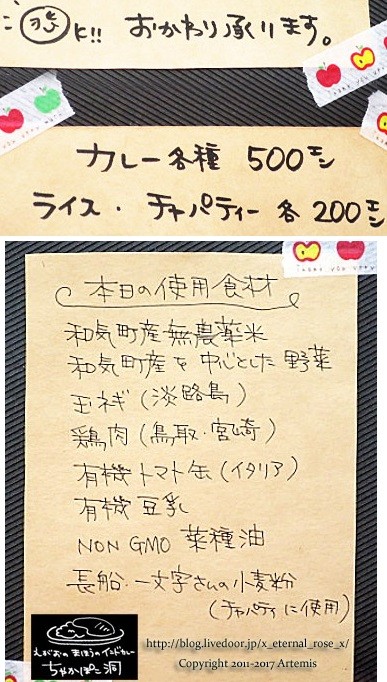 に!! おかわり承ります。
カレー各種 500エン
ライス・チャパティー 各200エン
本日の使用食材
和気町産無農薬米
和気町産を中心とした野菜
玉ネギ(淡路島)
鶏肉(鳥取・宮崎)
有機トマト缶(イタリア)
有機豆乳
NON GMO 菜種油
長船・一文字さんの小麦粉
(チャパティに使用)
えがおのまほうのインドカレー
ちゃかぽこ洞
http://blog.livedoor.jp/x_eternal_rose_x/
Copyright 2011-2017 Artemis